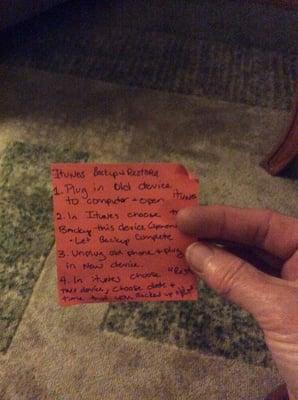 Itunes Backup + Restore
1. Plug in old device
to computer + open itunes
2. In Itunes choose to
Backup this device
• Let Backup Complete
3. Unplug old phone + plug
in new device.
4. In itunes choose "Rest
this device, choose date +
time that you Backed up